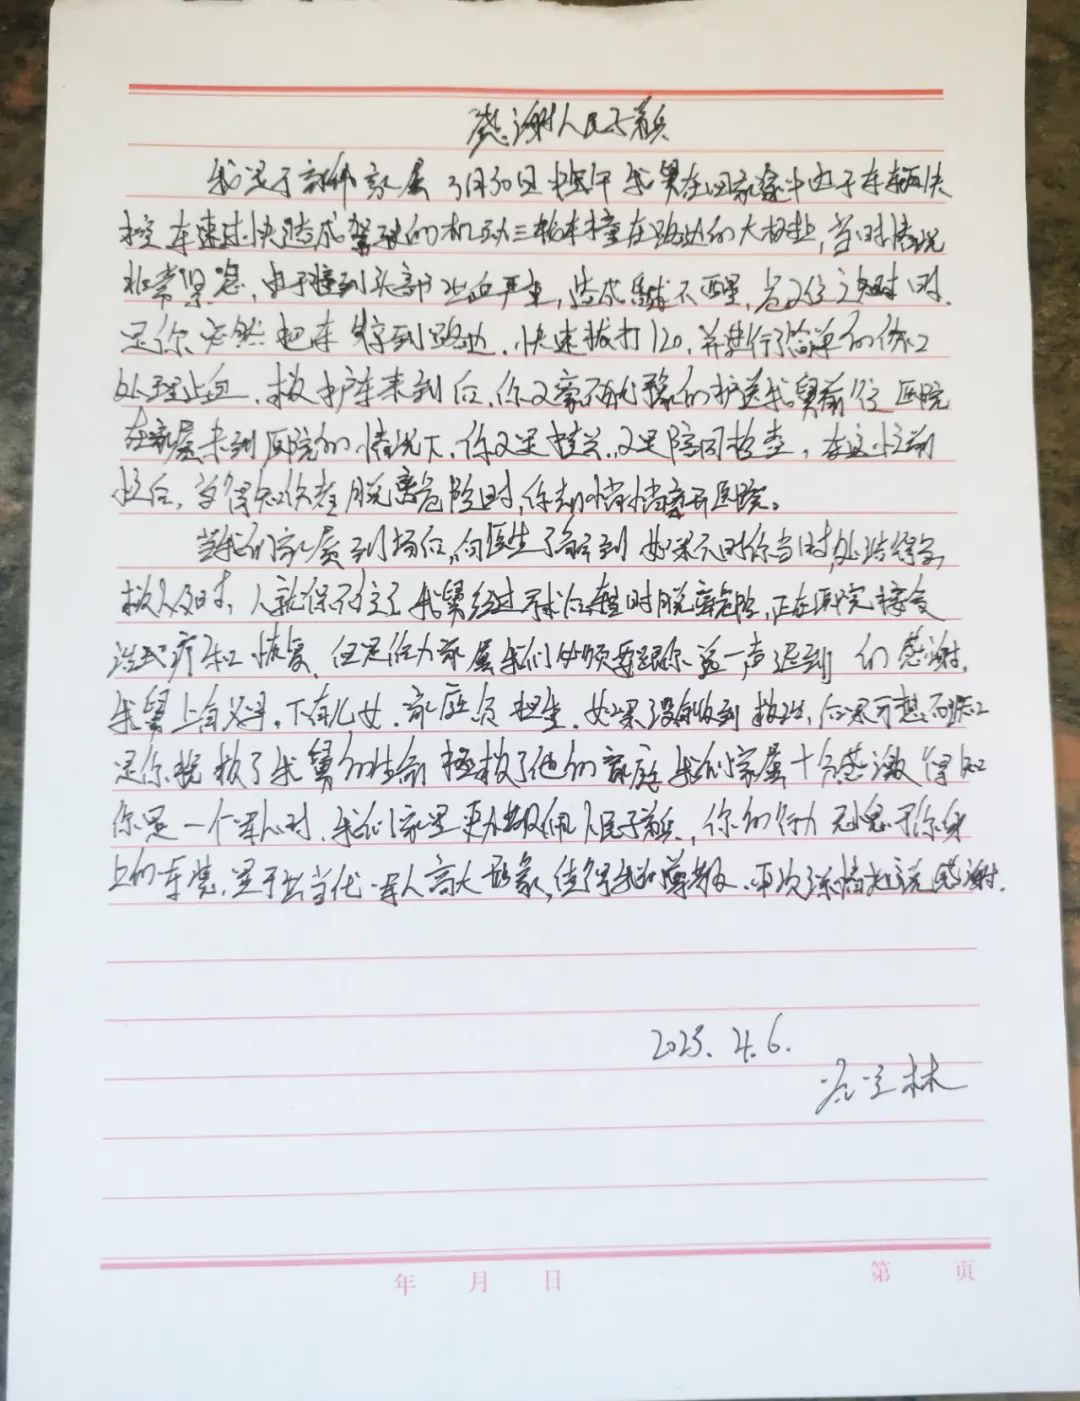 感谢人民子弟兵
我是于 家属 3月30日 我舅在回家途中由于车辆失
控 车速过快造成驾驶的机动三轮车撞在路边的大树上,当时情况
非常紧急,由于撞到头部 出血严重,造成 不醒,
是你 把车 停到路边.快速拨打120,并进行了简单的伤口
处理止血.救护车来到后.你又毫不犹豫的护送我舅前往 医院
在家属未到医院的情况下.你又是 又是陪同检查,在
后.当得知伤者脱离危险时,你却悄悄离开医院。
当我们家属到场后,向医生了解到 如果不是你当时处
救人及时,人就保不住了 我舅经过 时脱离危险,正在医院接受
治疗和恢复.但是作为家属我们必须要跟你说一声迟到 的感谢.
我舅上有父母,下有儿女.家庭负担重.如果没有 ,后果可想而知
是你挽救了我舅的生命 拯救了他的家庭 我们家属十分感激 得知
你是一个军人时,我们家里更加敬佩人民子弟兵,你的行为无愧于你身
上的军装. 当代 军人高大形象,值得我们尊敬.再次深情地说感谢.
2023.4.6.
林
年 月 日 第 页